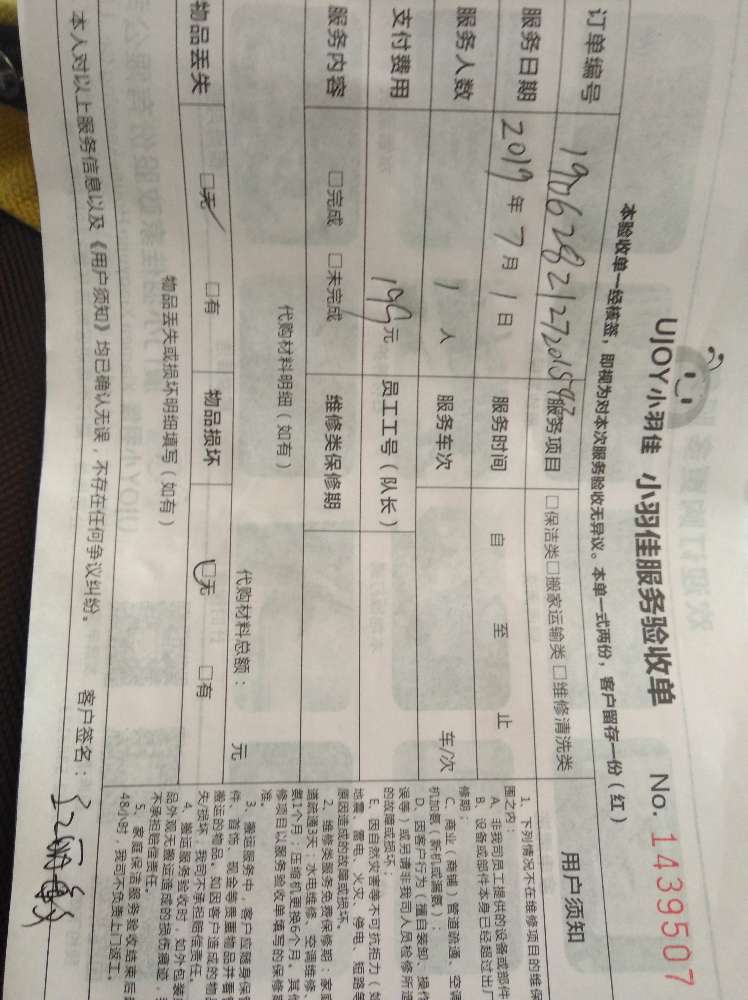 UJOY小羽佳 小羽佳服务验收单 No. 1439507
本验收单一经核签，即视为对本次服务验收无异议。本单一式两份，客户留存一份（红）
订单编号 服务项目 □保洁类□搬家运输类□维修清洗类
服务日期 2019年7月1日 服务时间 自 至 止
服务人数 1人 服务车次 车/次
支付费用 199元 员工工号（队长）
服务内容 □完成 □未完成 维修类保修期
代购材料明细（如有） 代购材料总额： 元
物品丢失 □无 □有 物品损坏 □无 □有
物品丢失或损坏明细填写（如有）
本人对以上服务信息以及《用户须知》均已确认无误，不存在任何争议纠纷。 客户签名：
用户须知
1、下列情况不在维修项目的维保
围之内：
A、非我司员工提供的设备或部件
B、设备或部件本身已经超过出厂
修期；
C、商业（商铺）管道疏通、空调
机加氨（新机或漏氨）；
D、因客户行为（擅自装卸、操作
误等）或另请非我司人员检修所造
的故障或损坏；
E、因自然灾害等不可抗拒力（如
地震、雷电、火灾、停电、短路等
原因造成的故障或损坏。
2、维修类服务免费保修期：家庭
道疏通3天；水电维修、空调维修、
氨1个月；压缩机更换6个月。其他
修项目以服务验收单填写的保修期
准。
3、搬运服务中，客户应随身保管
件、首饰、现金等贵重物品并妥管
搬运的物品。如因客户造成的物品
失/损坏，我司不承担赔偿责任。
4、搬运服务验收时，如外包装或
品外观无搬运造成的损伤痕迹，我
不承担赔偿责任。
5、家庭保洁服务验收结束后超
48小时，我司不负责上门返工。